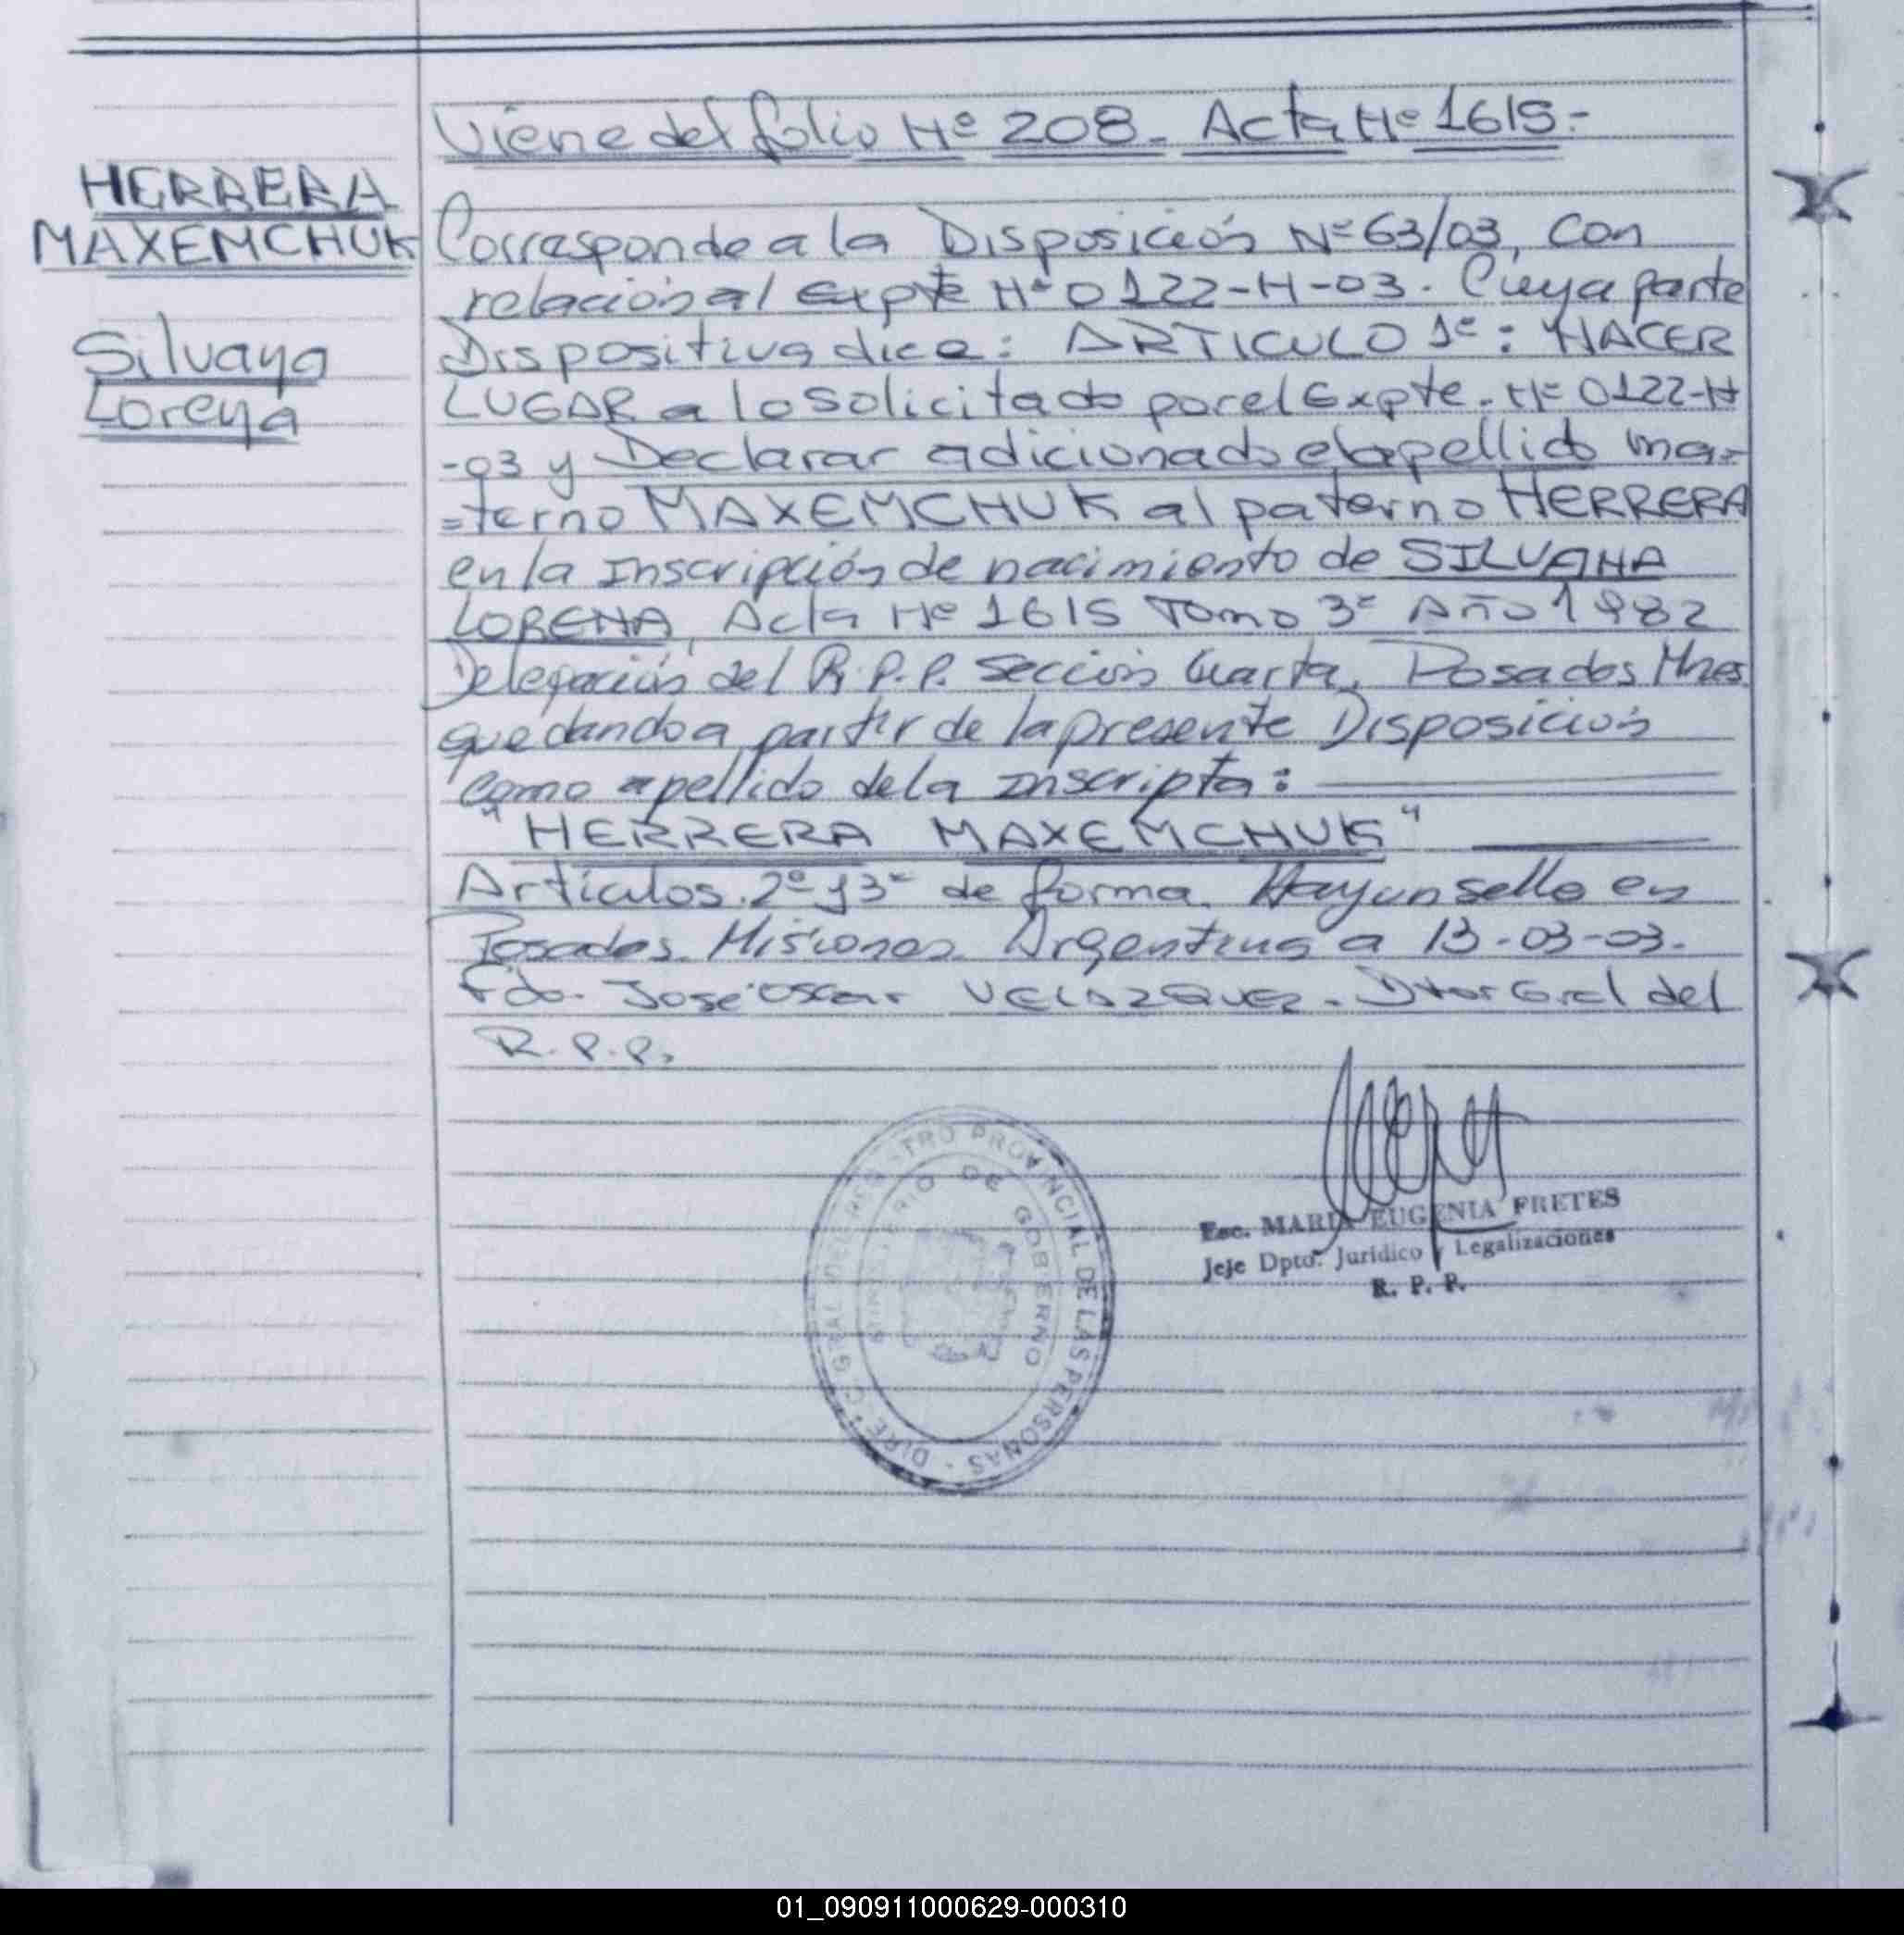 Viene del folio Nº 208. Acta Nº 1615.-
HERRERA
MAXEMCHUK
Silvana
Lorena
Corresponde a la Disposición Nº 63/03, con
relación al Expte Nº 0122-H-03. Cuya parte
Dispositiva dice: ARTICULO 1º: HACER
LUGAR a lo solicitado por el Expte. Nº 0122-H
-03 y Declarar adicionado el apellido ma=
=terno MAXEMCHUK al paterno HERRERA
en la Inscripción de nacimiento de SILVANA
LORENA, Acta Nº 1615 Tomo 3º Año 1982
Delegación del R.P.P. Sección Cuarta. Posadas Mnes
quedando a partir de la presente Disposición
como apellido de la Inscripta:
"HERRERA MAXEMCHUK"
Artículos 2º y 3º de forma. Hay un sello en
Posadas Misiones Argentina a 13-03-03.
Fdo. José Oscar VELAZQUEZ. Dtor Gral del
R.P.P.
DIREC. GRAL. DEL REGISTRO PROVINCIAL DE LAS PERSONAS
MINISTERIO DE GOBIERNO
Esc. MARIA EUGENIA FRETES
Jefe Dpto. Jurídico y Legalizaciones
R. P. P.
01_090911000629-000310